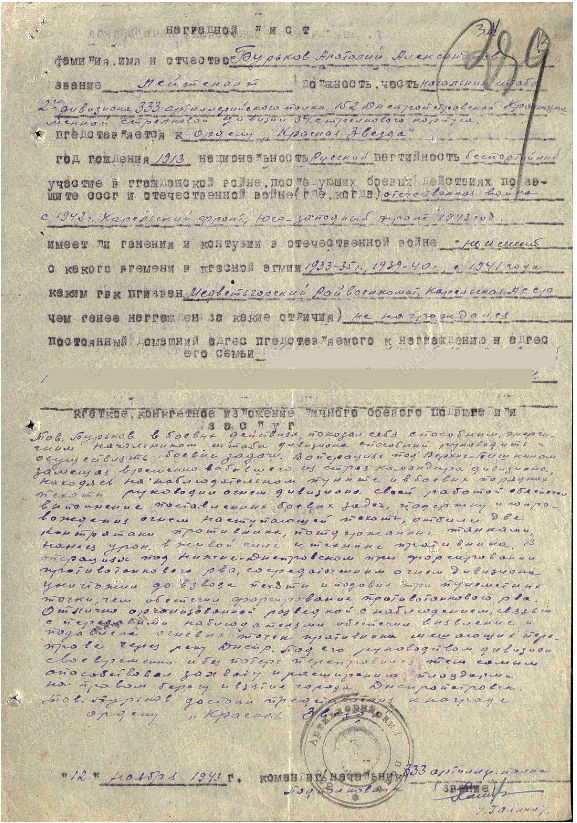 наградной лист
фамилия, имя и отчество Бурьков Анатолий Александров
звание Лейтенант должность, часть начальник штаба
2го дивизиона 333 артиллерийского полка 152 Днепропетровской Краснозна
менной стрелковой дивизии 34 стрелкового корпуса.
представляется к ордену „Красная Звезда"
год рождения 1913 национальность Русский партийность беспартийный
участие в гражданской войне, последующих боевых действиях по за-
щите СССР и отечественной войне (где, когда) отечественная война
с 1942 г. Карельский фронт, Юго-западный фронт 1943 год
имеет ли ранения и контузии в отечественной войне не имеет
с какого времени в красной армии 1933-35г., 1939-40г., с 1941 года
каким рвк призван Медвежьгорский Райвоенкомат, Карельская АССР
чем ранее награжден (за какие отличия) не награждался
постоянный домашний адрес представляемого к награждению и адрес
его семьи
краткое, конкретное изложение личного боевого подвига или
заслуг
Тов. Бурьков в боевых действиях показал себя способным, энерги
чным начальником штаба дивизиона способный руководить
осуществлять боевые задачи. В операциях под
замещая временно выбывшего из строя командира дивизиона,
находясь на наблюдательном пункте и в боевых порядках
пехоты руководил огнем дивизиона. Своей работой обеспечил
выполнение поставленных боевых задач, поддержку и сопро-
вождения огнем наступающей пехоты, отбили две
контратаки противника, поддержанные танками
нанес урон в живой силе и технике противника. В
операции под Нижне-Днепровском при форсировании
противотанкового рва, сосредоточенным огнем дивизиона
уничтожил до взвода пехоты и подавил три пулеметные
точки, чем обеспечил форсирование противотанкового рва
Отлично организованной разведкой и наблюдением, связью
с передовыми наблюдателями обеспечил выявление и
подавление огневых точек противника мешающих пере-
праве через реку Днепр. Под его руководством дивизион
своевременно и без потерь переправился тем самым
способствовал захвату и расширению плацдарма
на правом берегу и взятие города Днепропетровск.
Тов. Бурьков достоин представления к награде
ордену „Красная Звезда"
"12" ноября 1943 г. командир начальник 333 артилер. полка
Подполковник (звание)